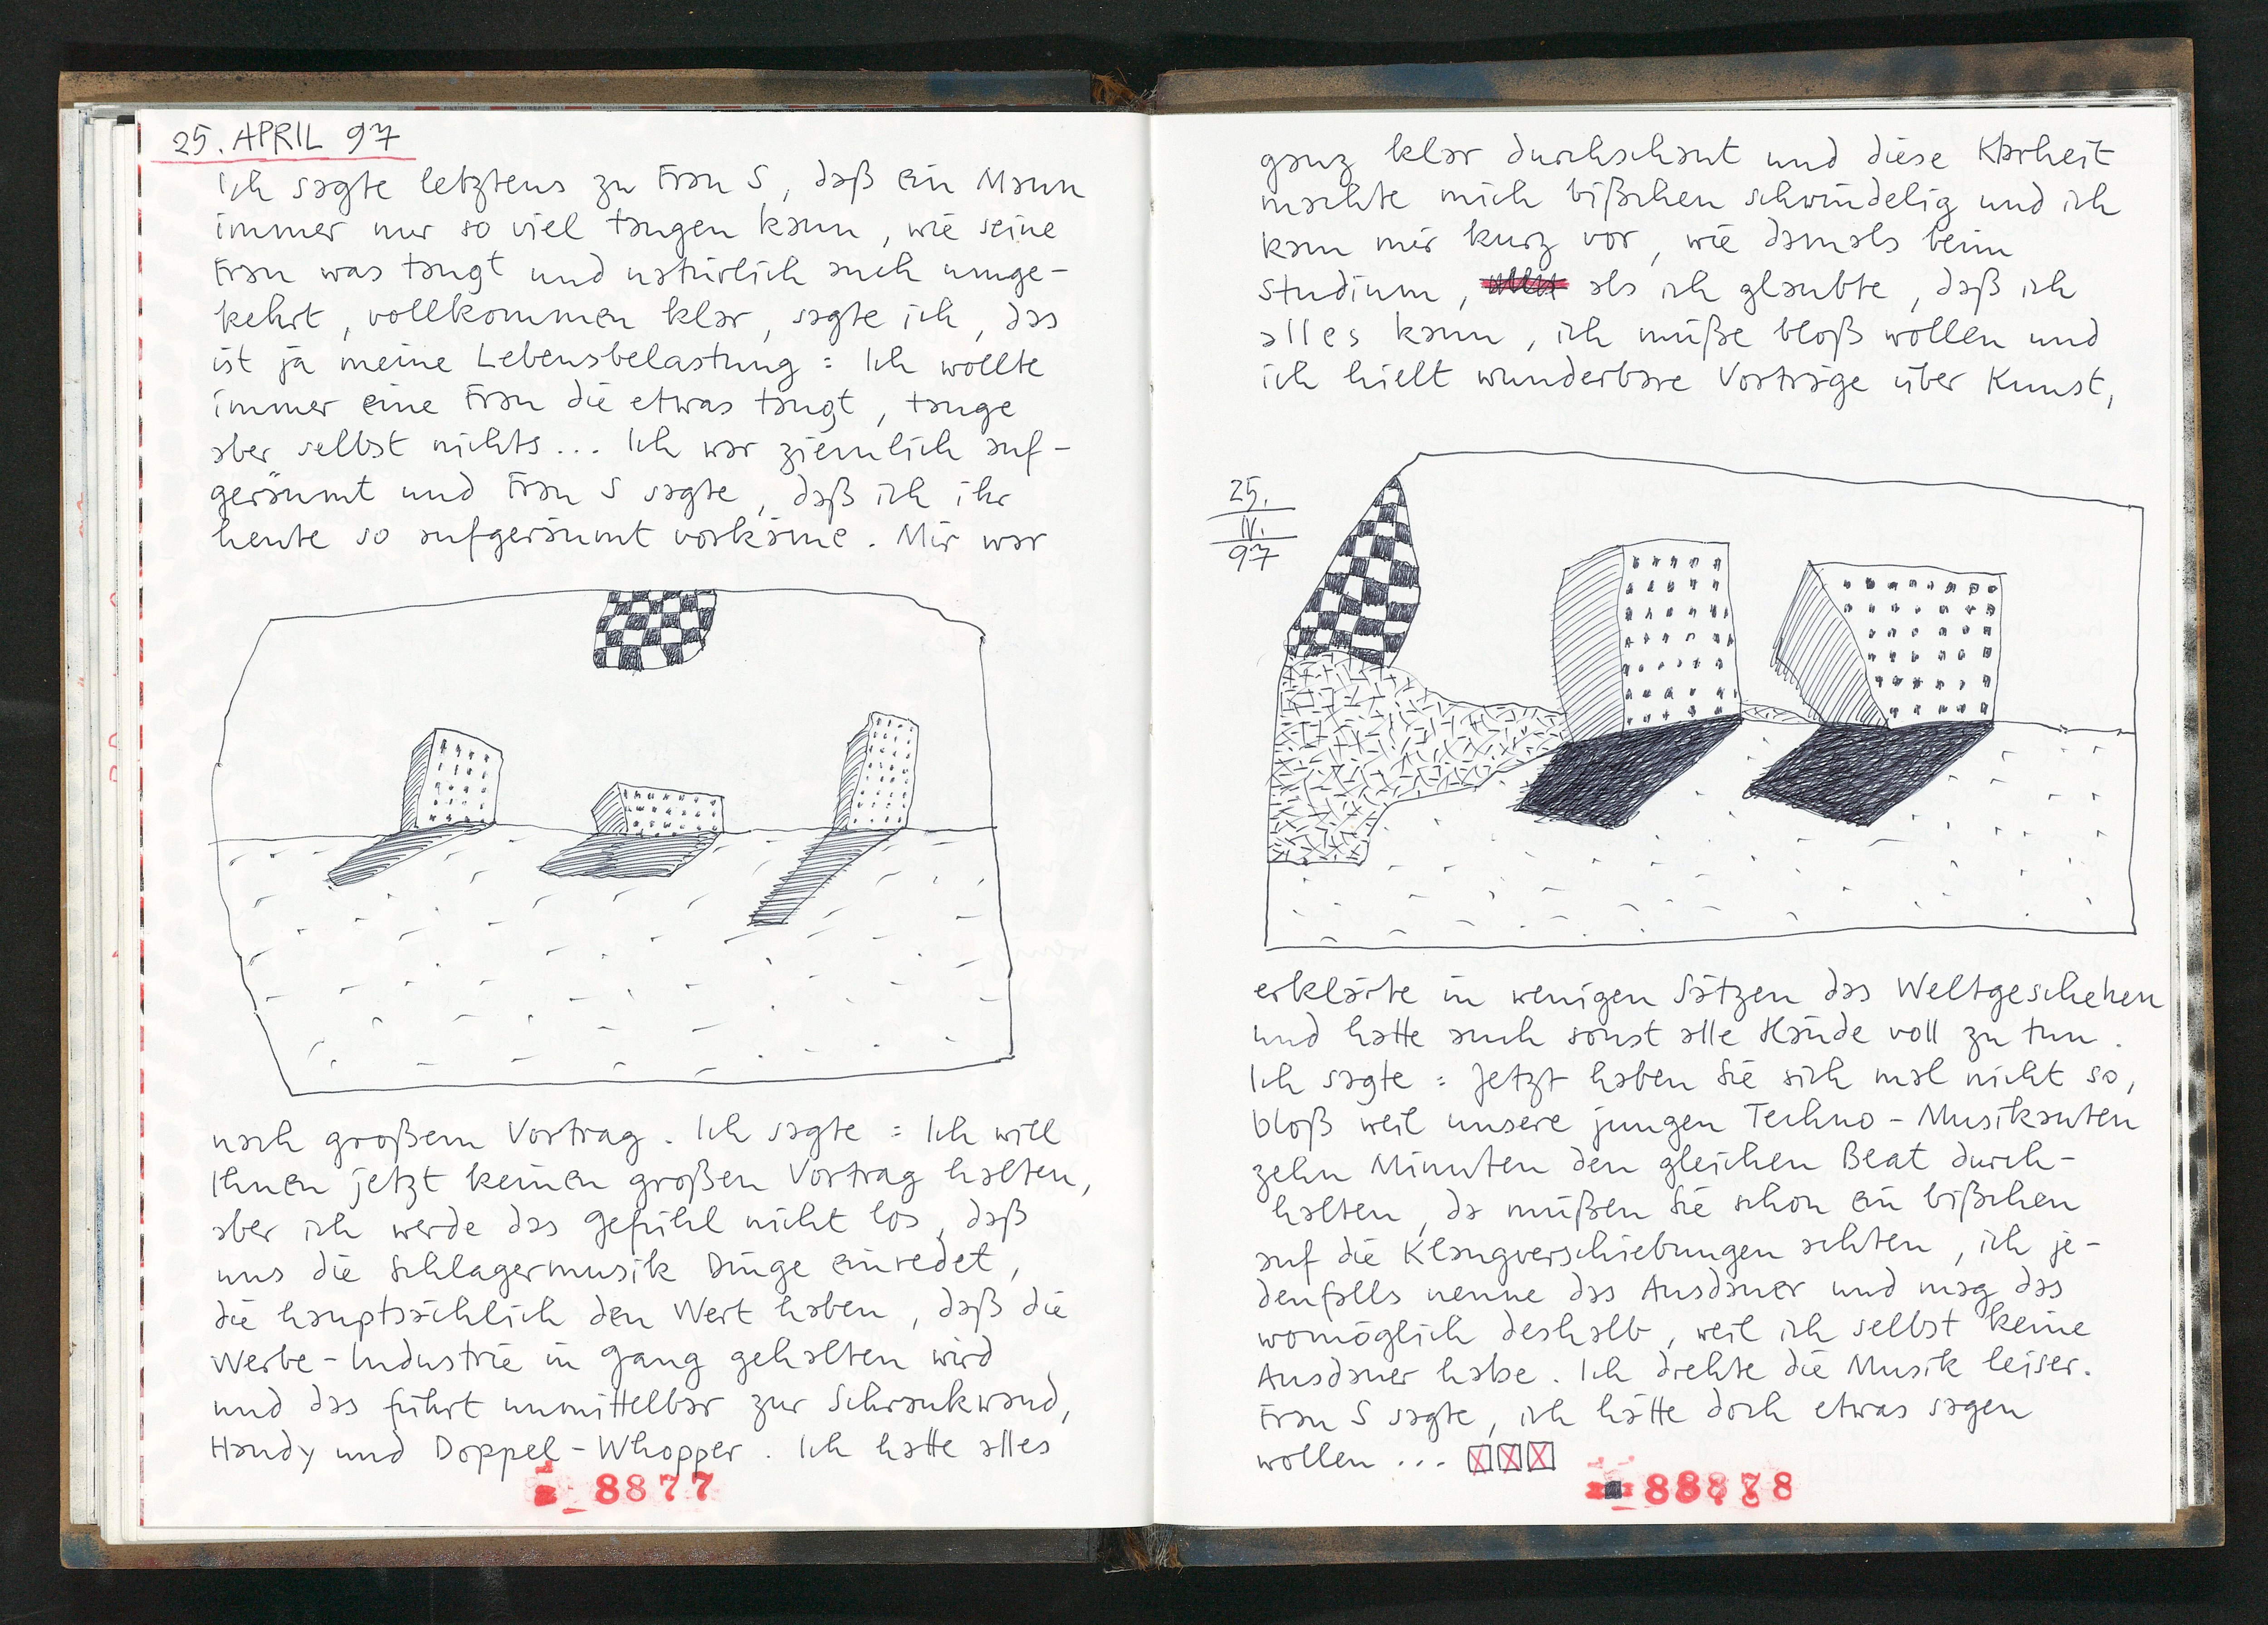 25. APRIL 97
Ich sagte letztens zu Frau S, daß ein Mann
immer nur so viel taugen kann, wie seine
Frau was taugt und natürlich auch umge-
kehrt, vollkommen klar, sagte ich, das
ist ja meine Lebensbelastung: Ich wollte
immer eine Frau die etwas taugt, tauge
aber selbst nichts... Ich war ziemlich auf-
geräumt und Frau S sagte, daß ich ihr
heute so aufgeräumt vorkäme. Mir war
nach großem Vortrag. Ich sagte: Ich will
Ihnen jetzt keinen großen Vortrag halten,
aber ich werde das Gefühl nicht los, daß
uns die Schlagermusik Dinge einredet,
die hauptsächlich den Wert haben, daß die
Werbe-Industrie in Gang gehalten wird
und das führt unmittelbar zur Schrankwand,
Handy und Doppel-Whopper. Ich hatte alles
8877
ganz klar durchschaut und diese Klarheit
machte mich bißchen schwindelig und ich
kam mir kurz vor, wie damals beim
Studium, als ich glaubte, daß ich
alles kann, ich müße bloß wollen und
ich hielt wunderbare Vorträge über Kunst,
25.
IV.
97
erklärte in wenigen Sätzen das Weltgeschehen
und hatte auch sonst alle Hände voll zu tun.
Ich sagte: Jetzt haben Sie sich mal nicht so,
bloß weil unsere jungen Techno-Musikanten
zehn Minuten den gleichen Beat durch-
halten, da müßen Sie schon ein bißchen
auf die Klangverschiebungen achten, ich je-
denfalls nenne das Ausdauer und mag das
womöglich deshalb, weil ich selbst keine
Ausdauer habe. Ich drehte die Musik leiser.
Frau S sagte, ich hätte doch etwas sagen
wollen...